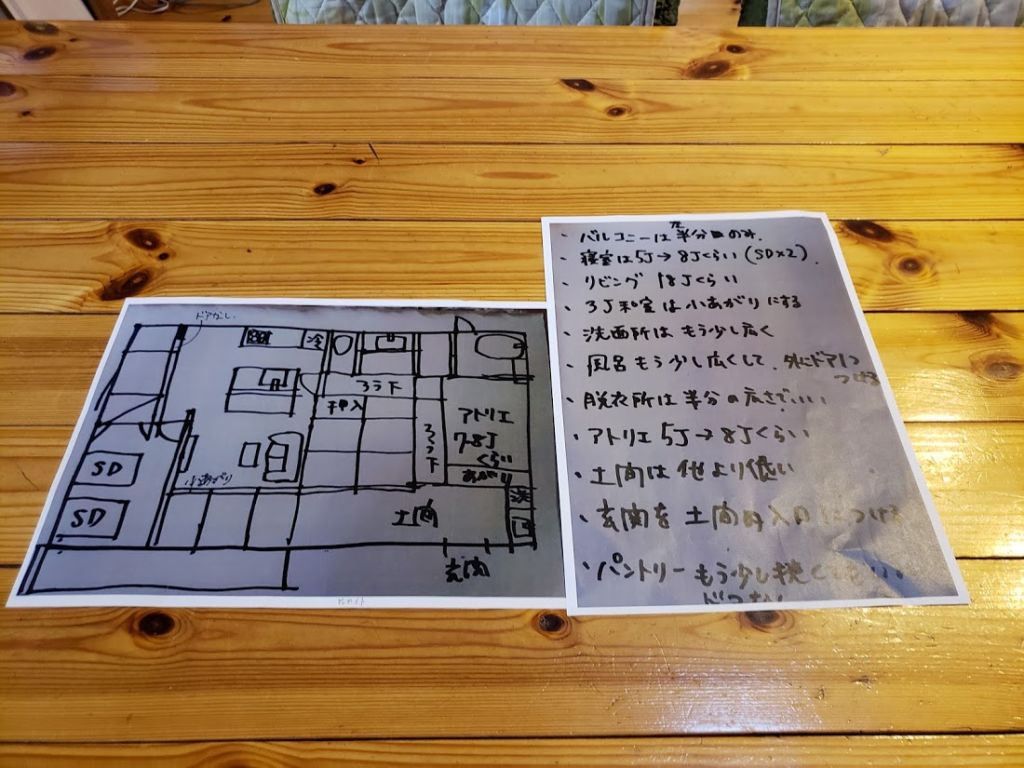 ドアなし
冷
ろう下
押入
アトリエ
7~8J
くらい
ろう下
あがり
SD
小あがり
SD
土間
洗
玄関
・バルコニーは左半分のみ.
・寝室は5J→8Jくらい(SD×2).
・リビング 18Jくらい
・3J和室は小あがりにする
・洗面所はもう少し広く
・風呂もう少し広くして、外にドア1つ
つける
・脱衣所は半分の広さでいい
・アトリエ 5J→8Jくらい
・土間は他より低い
・玄関を土間の入口につける
・パントリーもう少し狭くていい